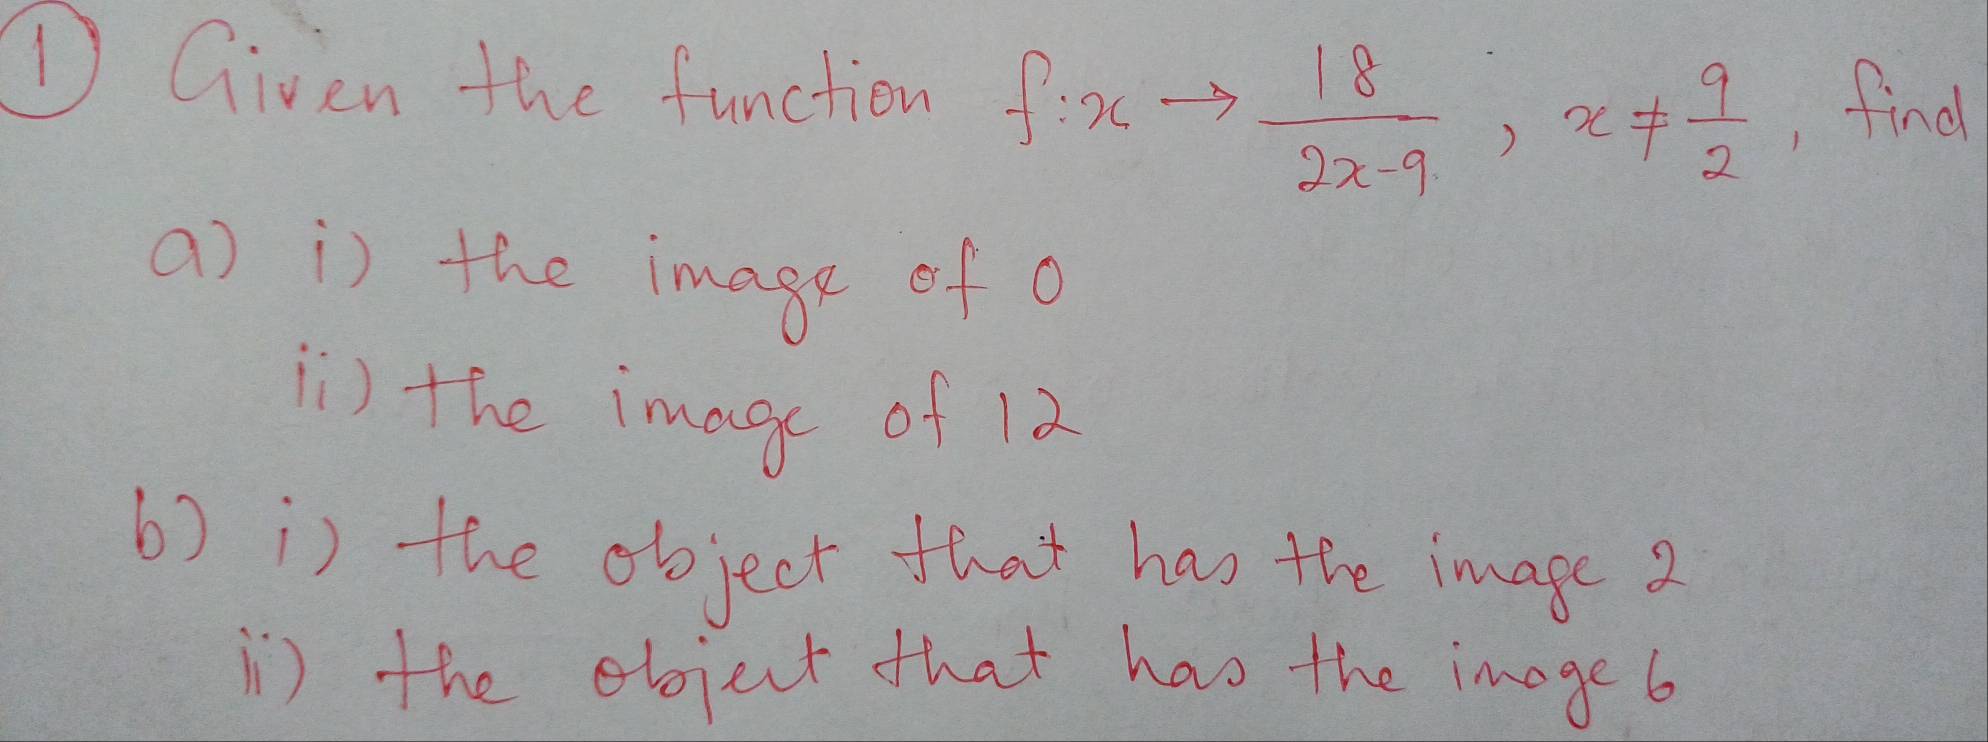 ① Given the function f:x → 18/(2x-9), x ≠ 9/2, find
a) i) the image of 0
ii) the image of 12
b) i) the object that has the image 2
ii) the object that has the image 6